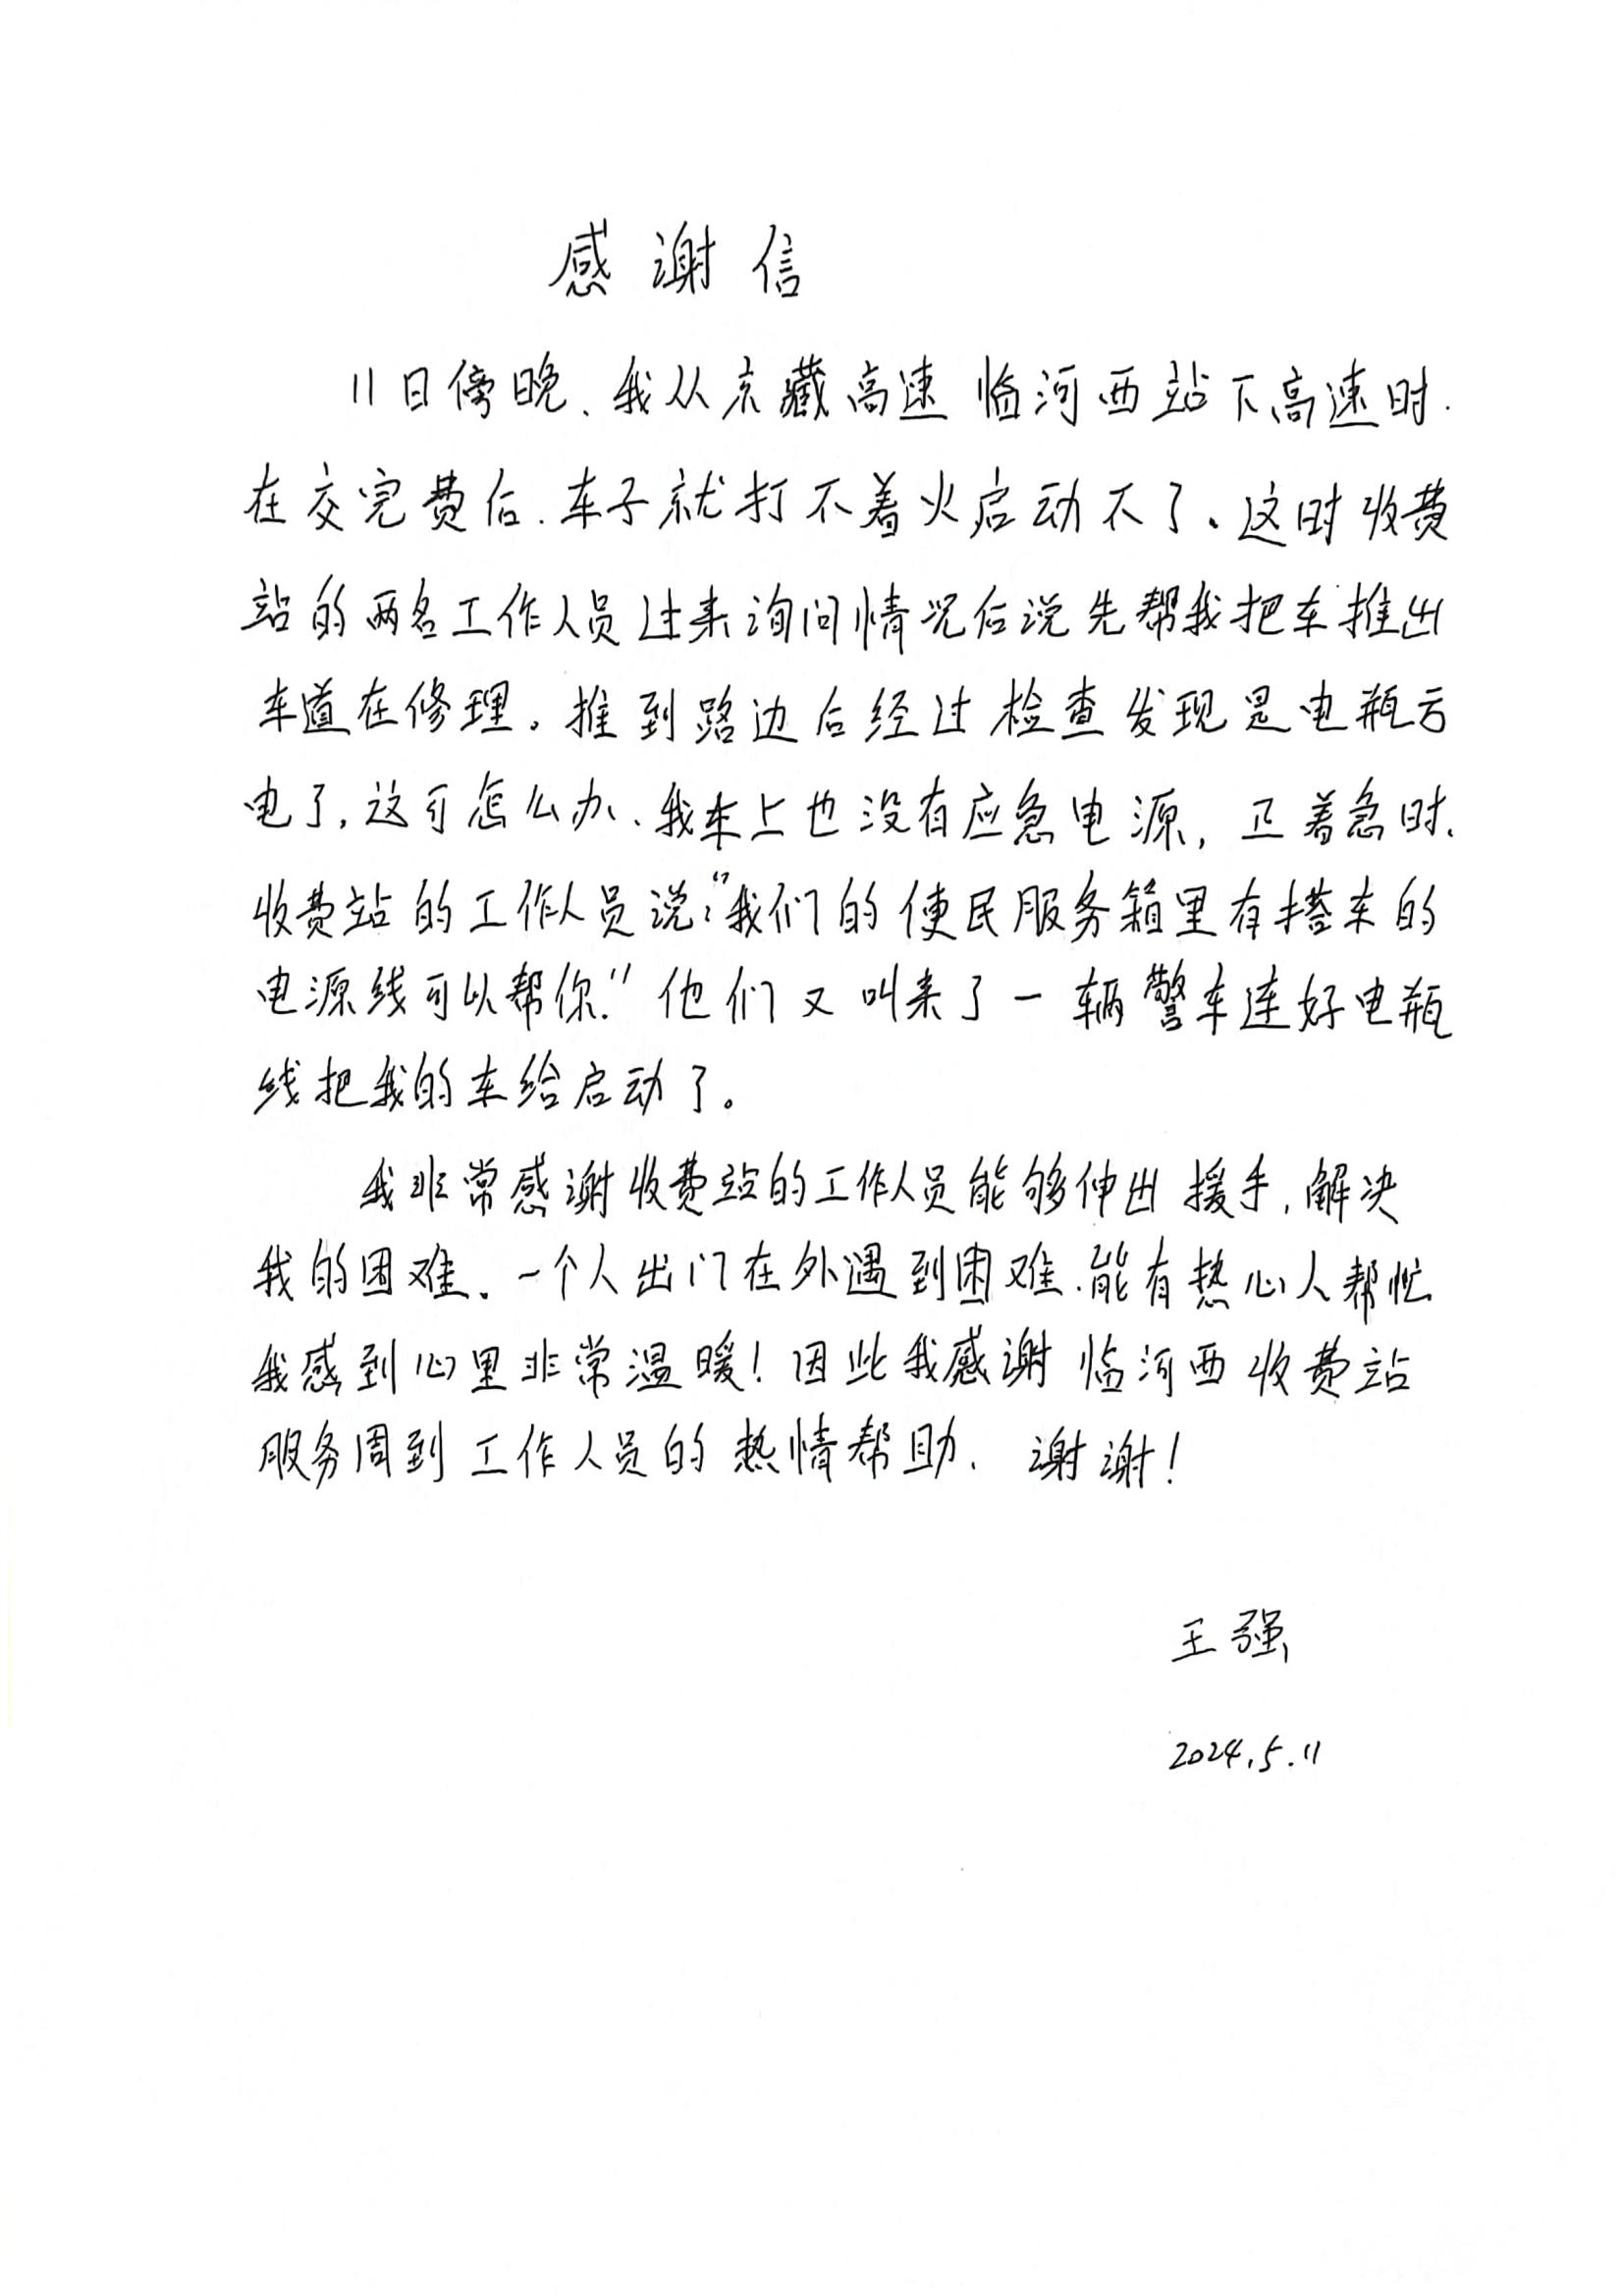 感谢信
11日傍晚、我从京藏高速临河西站下高速时.
在交完费后.车子就打不着火启动不了。这时收费
站的两名工作人员过来询问情况后说先帮我把车推出
车道在修理。推到路边后经过检查发现是电瓶亏
电了,这可怎么办、我车上也没有应急电源,正着急时、
收费站的工作人员说:“我们的便民服务箱里有搭车的
电源线可以帮你.”他们又叫来了一辆警车连好电瓶
线把我的车给启动了。
我非常感谢收费站的工作人员能够伸出援手,解决
我的困难。一个人出门在外遇到困难.能有热心人帮忙
我感到心里非常温暖!因此我感谢临河西收费站
服务周到工作人员的热情帮助.谢谢!
王强
2024.5.11